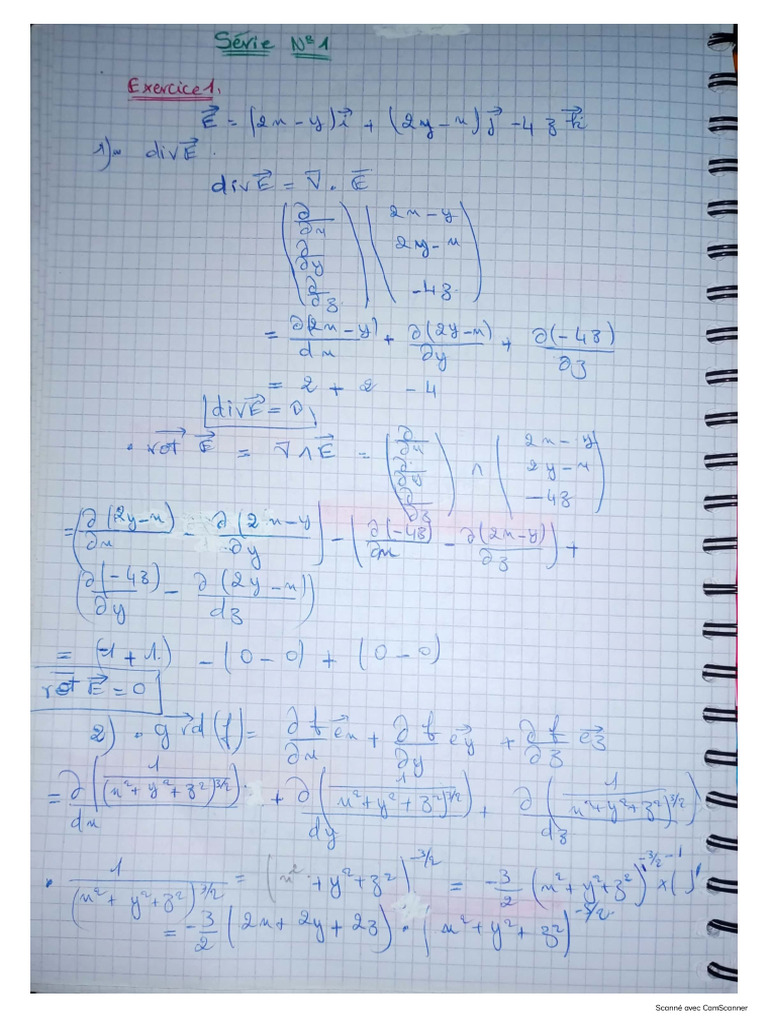 Série N°1
Exercice 1.
E⃗ = (2x - y) i⃗ + (2y - x) j⃗ - 4 z k⃗
1)- div E⃗ .
div E⃗ = ∇ . E⃗
(∂/∂x ∂/∂y ∂/∂z) (2x - y 2y - x -4z)
= ∂(2x - y)/dx + ∂(2y - x)/∂y + ∂(-4z)/∂z
= 2 + 2 - 4
div E⃗ = 0
• rot E⃗ = ∇ ∧ E⃗ = (∂/∂x ∂/∂y ∂/∂z) ∧ (2x - y 2y - x -4z)
= (∂(2y - x)/∂x - ∂(2x - y)/∂y) - (∂(-4z)/∂x - ∂(2x - y)/∂z) +
(∂(-4z)/∂y - ∂(2y - x)/dz)
= (-1 + 1) - (0 - 0) + (0 - 0)
rot E⃗ = 0
2) • grd(f) = ∂f/∂x e⃗x + ∂f/∂y e⃗y + ∂f/∂z e⃗z
= ∂(1/(x² + y² + z²)^3/2)/dx + ∂(1/(x² + y² + z²)^3/2)/dy + ∂(1/(x² + y² + z²)^3/2)/dz
• 1/(x² + y² + z²)^3/2 = (x² + y² + z²)^-3/2 = -3/2 (x² + y² + z²)^-3/2 - 1 × ( )'
= -3/2 (2x + 2y + 2z) • (x² + y² + z²)^-5/2
Scanné avec CamScanner